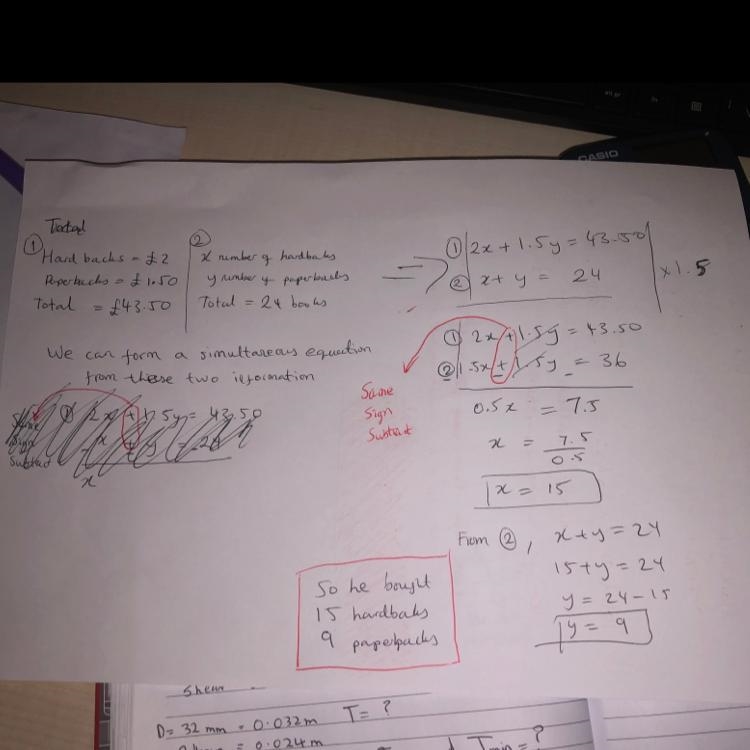 CASIO
Total
①
Hard backs = £2
Paperbacks = £1.50
Total = £43.50
②
x number of hardbaks
y number of paperbacks
Total = 24 books
We can form a simultaeous equation
from these two iformation
① 2x + 1.5y = 43.50
Same
Sign
Subtract
x
① 2x + 1.5y = 43.50
② x + y = 24
x 1.5
① 2x + 1.5y = 43.50
② 1.5x + 1.5y = 36
Same
Sign
Subtract
0.5x = 7.5
x = 7.5
0.5
x = 15
From ②, x + y = 24
15 + y = 24
y = 24 - 15
y = 9
So he bought
15 hardbaks
9 paperbacks
Shear
D = 32 mm = 0.032m T = ?
= 0.024m
Tmin = ?